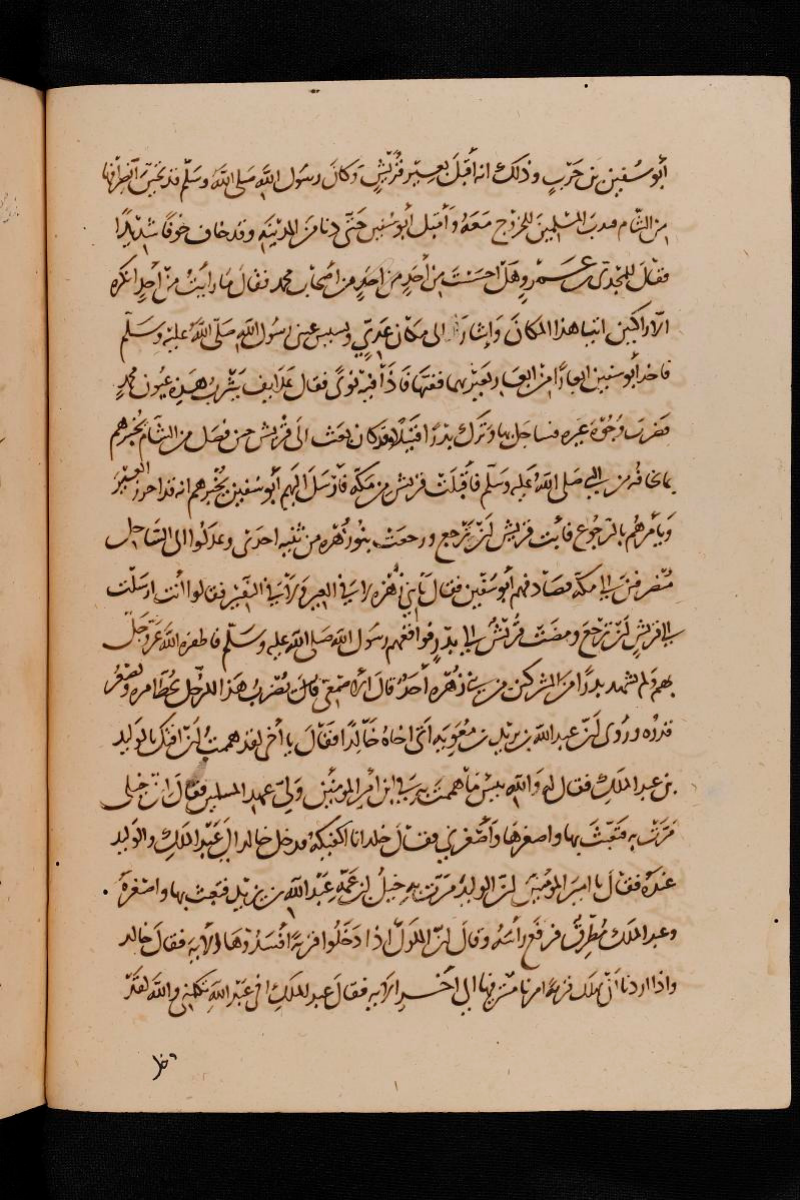 أبو سُفين بن حَربٍ وذلك انه أقبلَ بعِيْر قُرَيْشٍ وَكانَ رسُول اللَّه صَلى اللَّهُ وسَلّم قد تحيّن انصرافها
من الشام فندبَ المُسْلمينَ للخرُوج مَعَهُ وَأقبَل أبوسُفين حَتّى دنا مِنَ المدينَه وقد خاف خوفًا شدِيدًا
فقالَ للمجدى بن عَمْروٍ هَلْ احسَسْتَ مِنْ أحَدٍ مِن احَدٍ من أصحاب محمد فقالَ ما رأيتُ مِنْ أحدٍ انكره
الّا راكبين اتيا هذا المكانَ وَاشارَ الى مكان عَدِيّ وبسبس عينى رسُول اللَّهِ صَلّى اللَّهُ عليْه وسَلّم
فاخد أبوسفين ابعارًا مِن ابعار بعيريهما ففتها فاذا فيه نوًى فقال عَلَايف يثربُ هَذه عيُون محمدٍ
فضربَ وُجُوهَ عيره فساحَل بها وَتَرَك بدرًا وقد كان بعث الى قُريش حين فصَل من الشام يخبرهم
بما يخافه من النبى صَلى اللَّه عَليه وسَلّم فأقبَلَتْ قريش من مكّه فارسَلَ اليهم أبو سُفين يخبرهم انه قد احرز العِيْرَ
وَيأمرُهُم بالرجُوع فابت قريش اَنْ تَرجع ورجعَتْ بنُو زُهْره من ثنيه احدى وعدَلُوا الى السَاحِل
منصرفين الى مكه فصَادفهم أبو سُفين فقال يا بني زُهره لا فى العِير ولا فى النفير فقالوا أنت ارسَلْت
الى قريشٍ أنْ ترجعَ ومضَتْ قُريْشٌ الى بدرٍ فواقعهم رسُول اللَّه صَلى اللَّه عليه وسَلّم فاظفره اللَّهُ عَزّوَجَلّ
بهم وَلم يشهد بدرًا مِن المشركين من بنى زُهره أحَدٌ قالَ الاصمَعى يُضْرَبُ هَذَا للرجل يُحَطّ امره ويصغّرُ
قدرُه ورُوى اَنّ عبداللَّه بن يزيد بن معوِيَه اتى اخاهُ خالِدًا فقَالَ يا أخى لقد هممتُ اَنْ افتك بالوَليد
بن عبد الملكِ فقال له وَاللَّهِ بيسَ مَا هممتَ به فى ابن أمِير المؤمنين وَوَلِيّ عهد المسلمين فقالَ انّ خيلى
مَرّتْ به فعَبَثَ بها واصغرهَا وَأصْغرني فقالَ خلد انا اكفيكهُ فدخل خالد الى عَبْد الملكِ والوَليد
عندَهُ فقالَ يا اميرَ المؤمنين انّ الوليد مرّت به خيلُ ابن عَمّه عَبْد اللَّهِ بن يزيد فعَبث بها واصْغرَهُ
وعبد الملك مُطْرِقٌ فرفَع رأسَهُ وقَالَ انّ الملوكَ اذا دَخَلُوا قريةً افسَدُوهَا الآيه فقالَ خالد
واذا اردنا أنْ نهلك قريةً امرنا مُترفيها الى آخر الآيه فقالَ عبد الملك افى عَبْد اللَّهِ تكلمنى واللَّهِ لقدْ
دخل